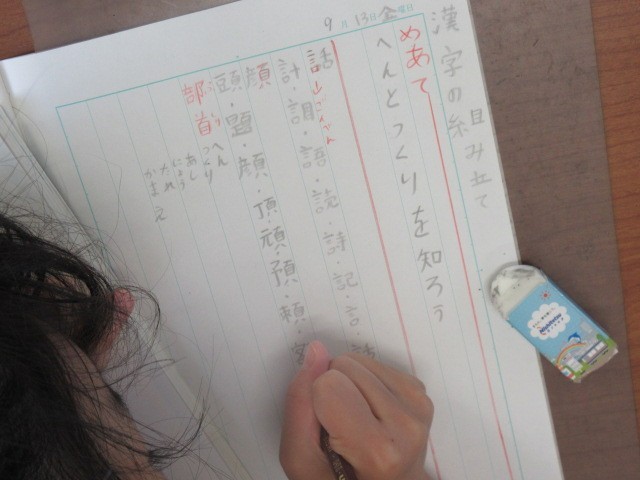 9月13日金曜日
漢字の組み立て
めあて
へんとつくりを知ろう
話→ごんべん
計・調・語・読・詩・記・言・
顔
頭・題・顔・頂・頑・預・頼・
部首
へん
つくり
あし
にょう
たれ
かまえ